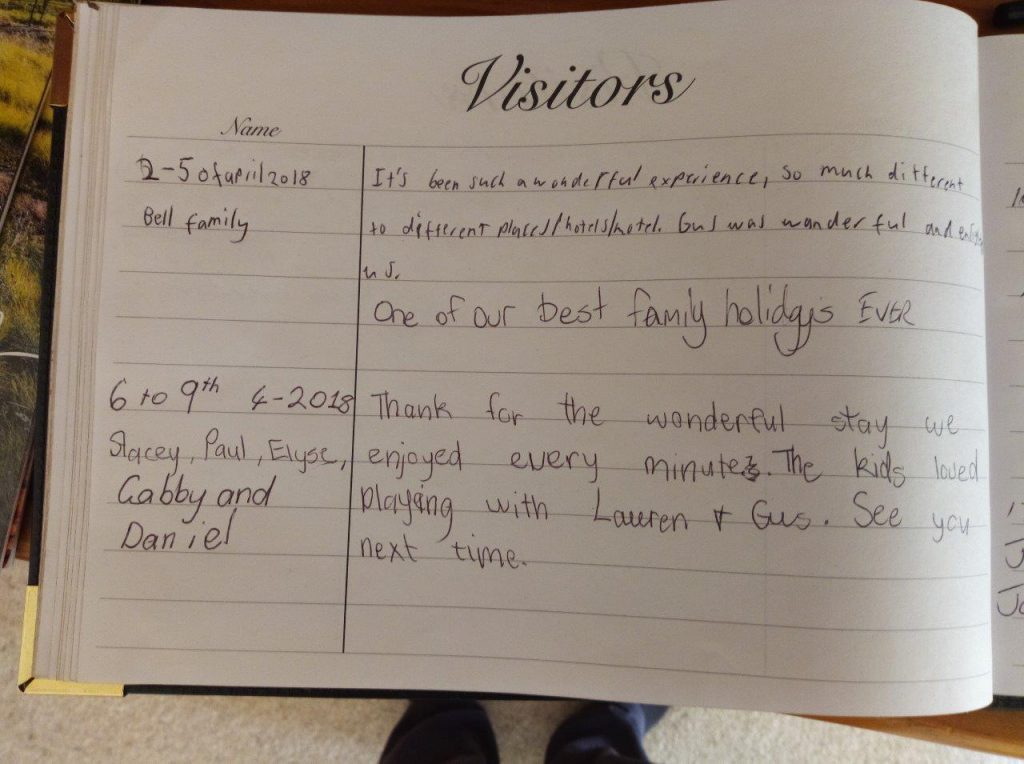 Visitors
Name
2-5 of april 2018
It's been such a wonderful experience, so much different
Bell family
to different places/hotels/motel. Gus was wonderful and
us.
One of our best family holidgys EVER
6 to 9th 4-2018
Thank for the wonderful stay we
Stacey, Paul, Elyse,
enjoyed every minutes. The kids loved
Gabby and
playing with Lauren & Gus. See you
Daniel
next time.